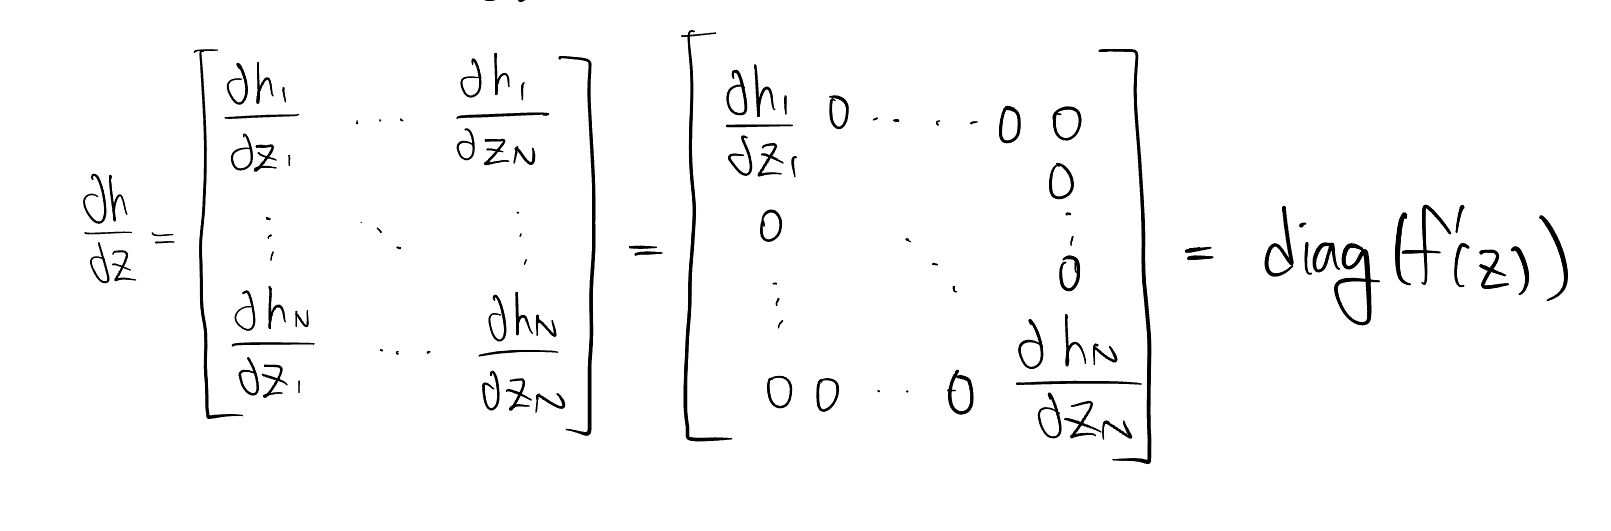 ∂h/∂z = [ ∂h₁/∂z₁ ... ∂h₁/∂z_N ; ⋮ ⋱ ⋮ ; ∂h_N/∂z₁ ... ∂h_N/∂z_N ] = [ ∂h₁/∂z₁ 0 ..... 0 0 ; 0 ; 0 ⋱ ⋮ ; ⋮ 0 ; 0 0 ... 0 ∂h_N/∂z_N ] = diag(f'(z))